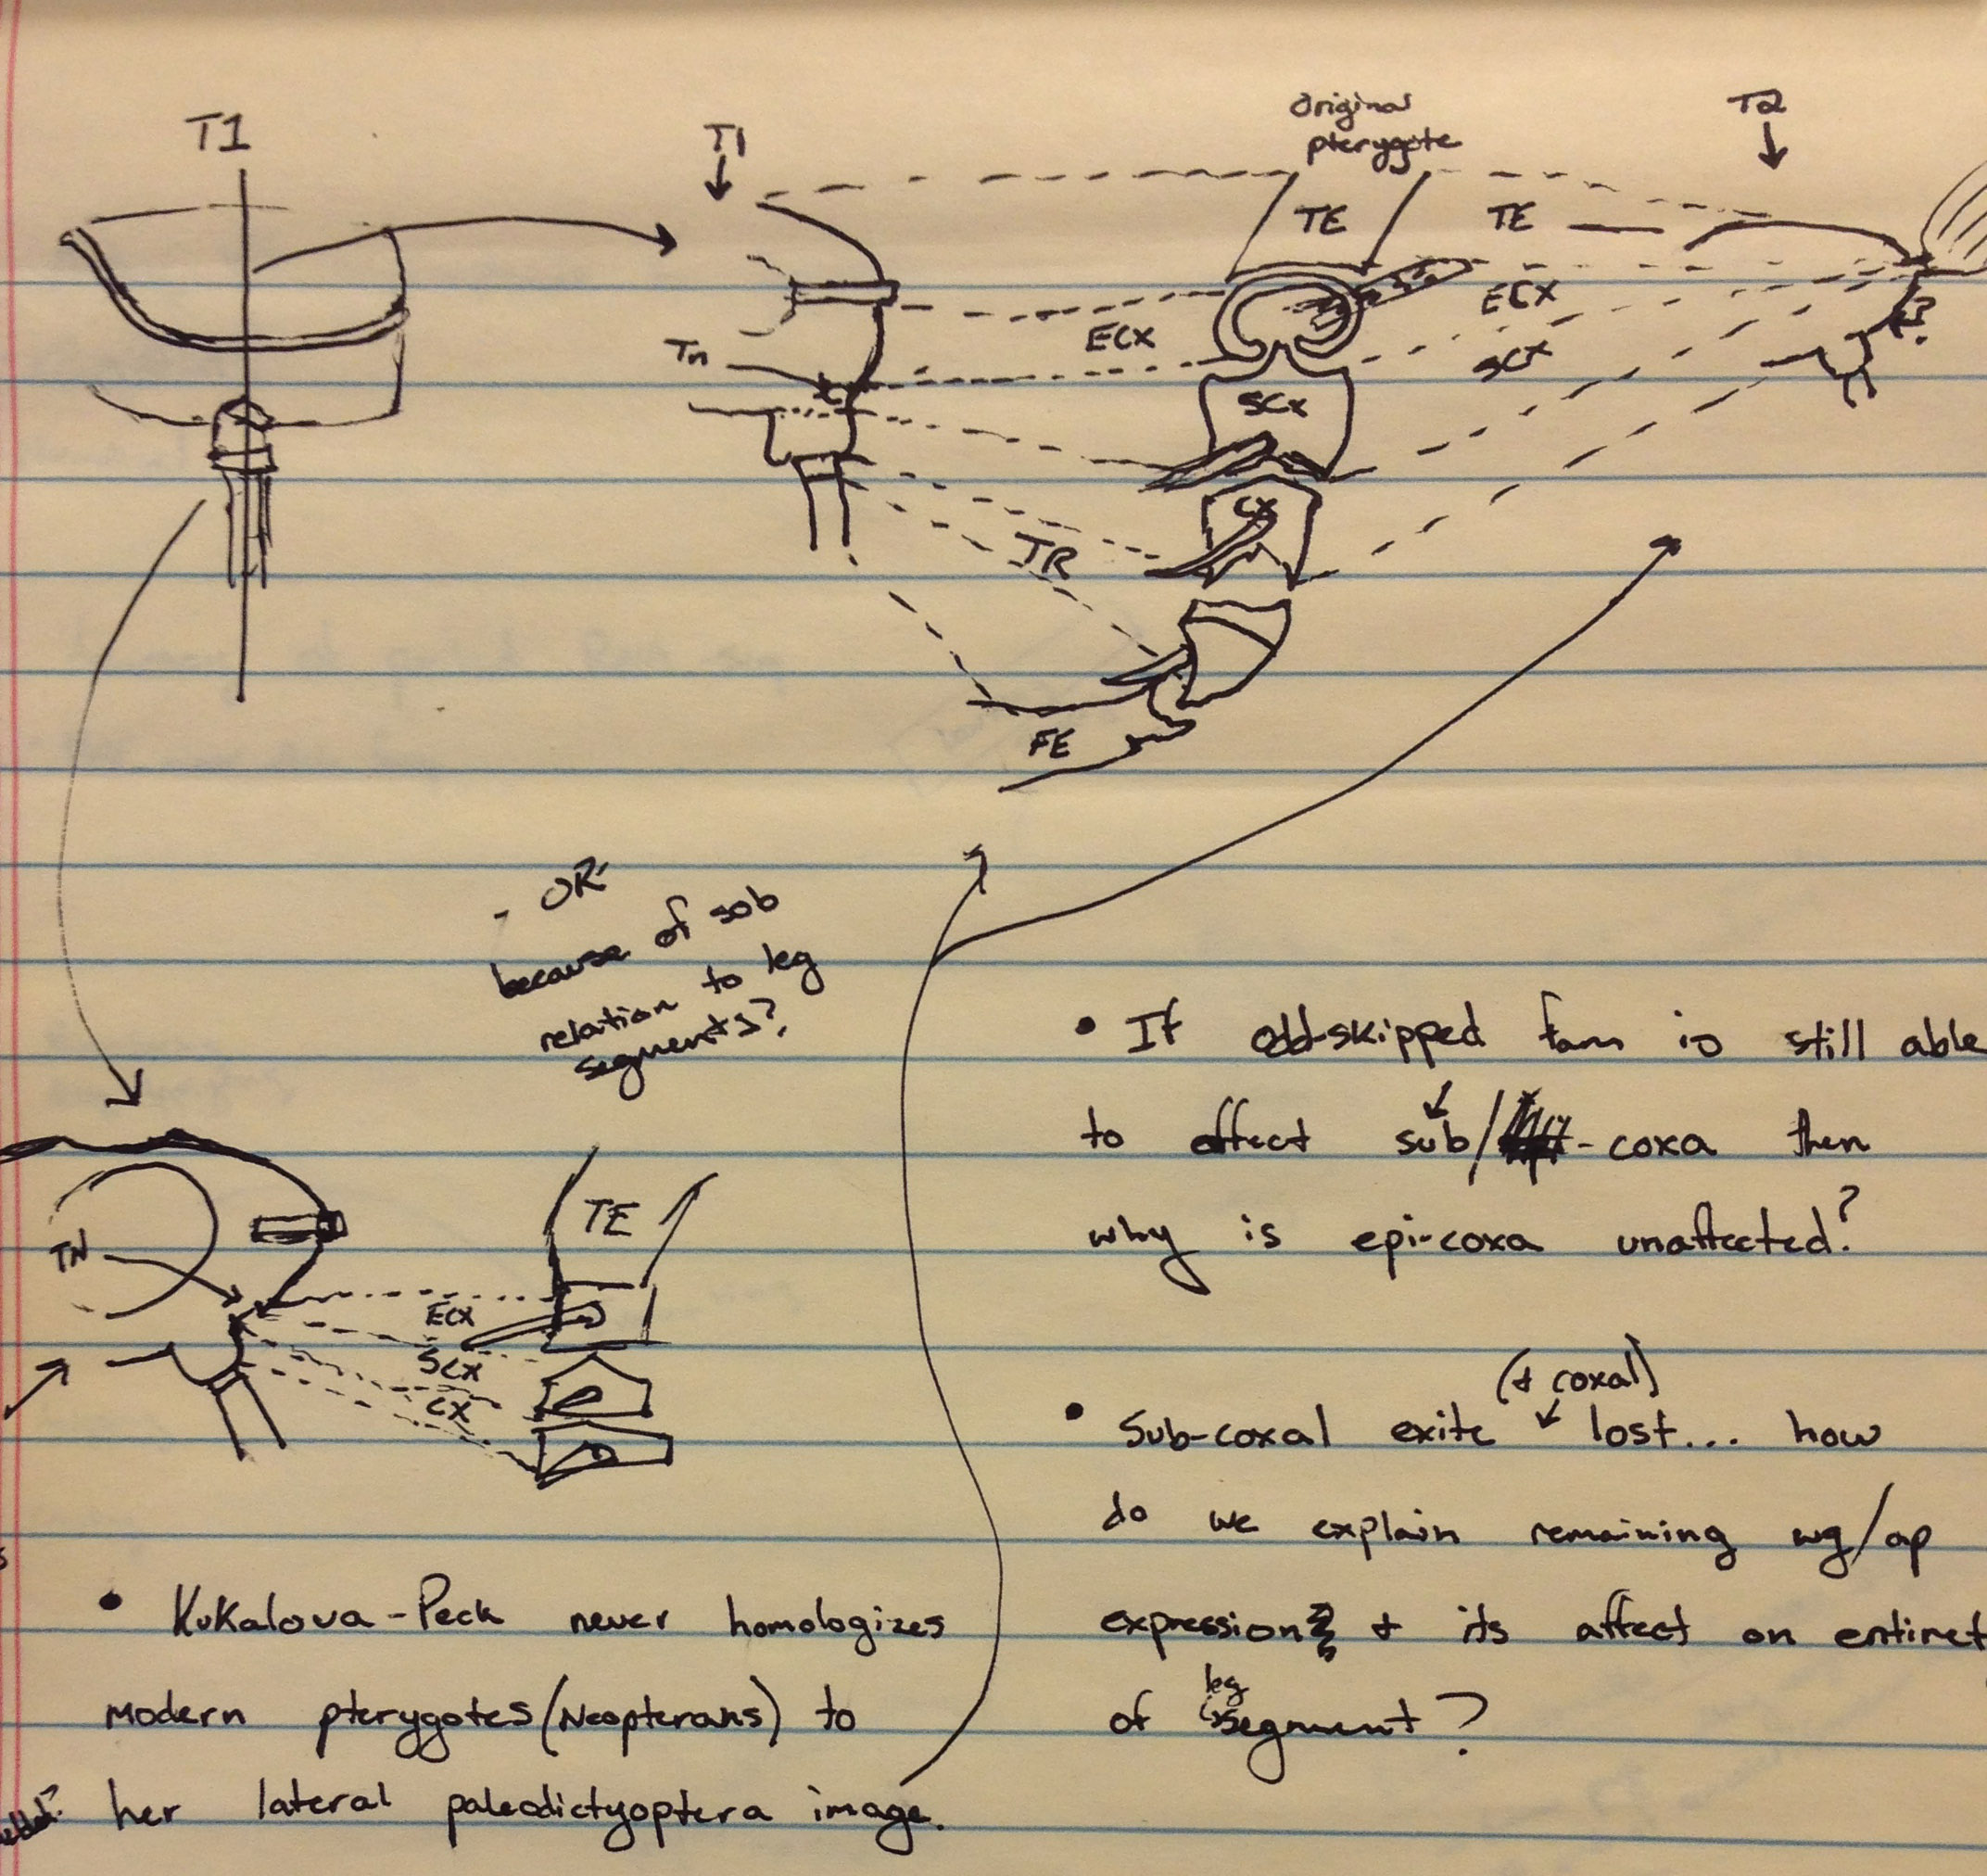 T1
T1
Original
pterygote
T2
TE
TE
ECX
ECX
Tn
SCX
?
SCX
CX
TR
FE
- OR
because of sob
relation to leg
segments?
TE
TN
ECX
SCX
CX
• Kukalova-Peck never homologizes
modern pterygotes (Neopterans) to
her lateral paleodictyoptera image.
• If odd-skipped fam is still able
to affect sub/ -coxa then
why is epi-coxa unaffected?
(+ coxal)
• Sub-coxal exite lost... how
do we explain remaining wg/ap
expression + its affect on entiret
of leg segment?